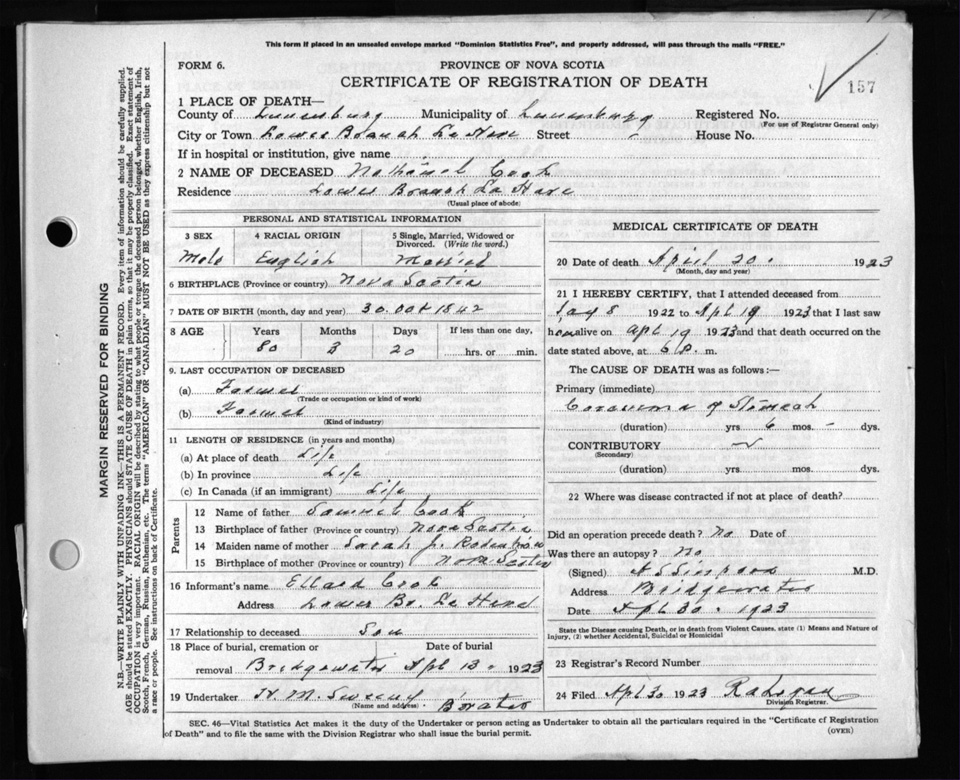 This form if placed in an unsealed envelope marked "Dominion Statistics Free", and properly addressed, will pass through the mails "FREE."
FORM 6.
PROVINCE OF NOVA SCOTIA
CERTIFICATE OF REGISTRATION OF DEATH
157
1 PLACE OF DEATH—
County of Lunenburg Municipality of Lunenburg Registered No.
(For use of Registrar General only)
City or Town Lower Branch La Have Street House No.
If in hospital or institution, give name
2 NAME OF DECEASED Nathaniel Cook
Residence Lower Branch La Have
(Usual place of abode)
PERSONAL AND STATISTICAL INFORMATION
3 SEX 4 RACIAL ORIGIN 5 Single, Married, Widowed or Divorced. (Write the word.)
Male English Married
6 BIRTHPLACE (Province or country) Nova Scotia
7 DATE OF BIRTH (month, day and year) 30 Oct 1842
8 AGE Years Months Days If less than one day,
80 3 20 hrs. or min.
9. LAST OCCUPATION OF DECEASED
(a) Farmer
(Trade or occupation or kind of work)
(b) Farmer
(Kind of industry)
11 LENGTH OF RESIDENCE (in years and months)
(a) At place of death Life
(b) In province Life
(c) In Canada (if an immigrant) Life
Parents
12 Name of father Samuel Cook
13 Birthplace of father (Province or country) Nova Scotia
14 Maiden name of mother Sarah J.
15 Birthplace of mother (Province or country) Nova Scotia
16 Informant's name Ellard Cook
Address Lower Br. La Have
17 Relationship to deceased Son
18 Place of burial, cremation or removal Date of burial
Bridgewater Apl 1923
19 Undertaker H. M.
(Name and address) B'water
MEDICAL CERTIFICATE OF DEATH
20 Date of death April 20. 1923
(Month, day and year)
21 I HEREBY CERTIFY, that I attended deceased from
8 1922 to Apl 19 1923 that I last saw
him alive on Apl 19 1923 and that death occurred on the
date stated above, at 6 P. m.
The CAUSE OF DEATH was as follows:—
Primary (immediate)
Carcinoma of Stomach
(duration) yrs 6 mos. - dys.
CONTRIBUTORY
(Secondary)
(duration) yrs. mos. dys.
22 Where was disease contracted if not at place of death?
Did an operation precede death? No Date of
Was there an autopsy? No
(Signed) M.D.
Address Bridgewater
Date Apl 30. 1923
State the Disease causing Death, or in death from Violent Causes, state (1) Means and Nature of Injury, (2) whether Accidental, Suicidal or Homicidal
23 Registrar's Record Number
24 Filed Apl 30 1923
Division Registrar.
SEC. 46—Vital Statistics Act makes it the duty of the Undertaker or person acting as Undertaker to obtain all the particulars required in the "Certificate of Registration
of Death" and to file the same with the Division Registrar who shall issue the burial permit.
(OVER)
MARGIN RESERVED FOR BINDING
N.B.—WRITE PLAINLY WITH UNFADING INK—THIS IS A PERMANENT RECORD. Every item of information should be carefully supplied.
AGE should be stated EXACTLY. PHYSICIANS should STATE CAUSE OF DEATH in plain terms, so that it may be properly classified. Exact statement of
OCCUPATION is very important. RACIAL ORIGIN will be described by stating to what people or tongue the deceased person belonged, whether English, Irish,
Scotch, French, German, Russian, Ruthenian, etc. The terms "AMERICAN" OR "CANADIAN" MUST NOT BE USED as they express citizenship but not
a race or people. See instructions on back of Certificate.